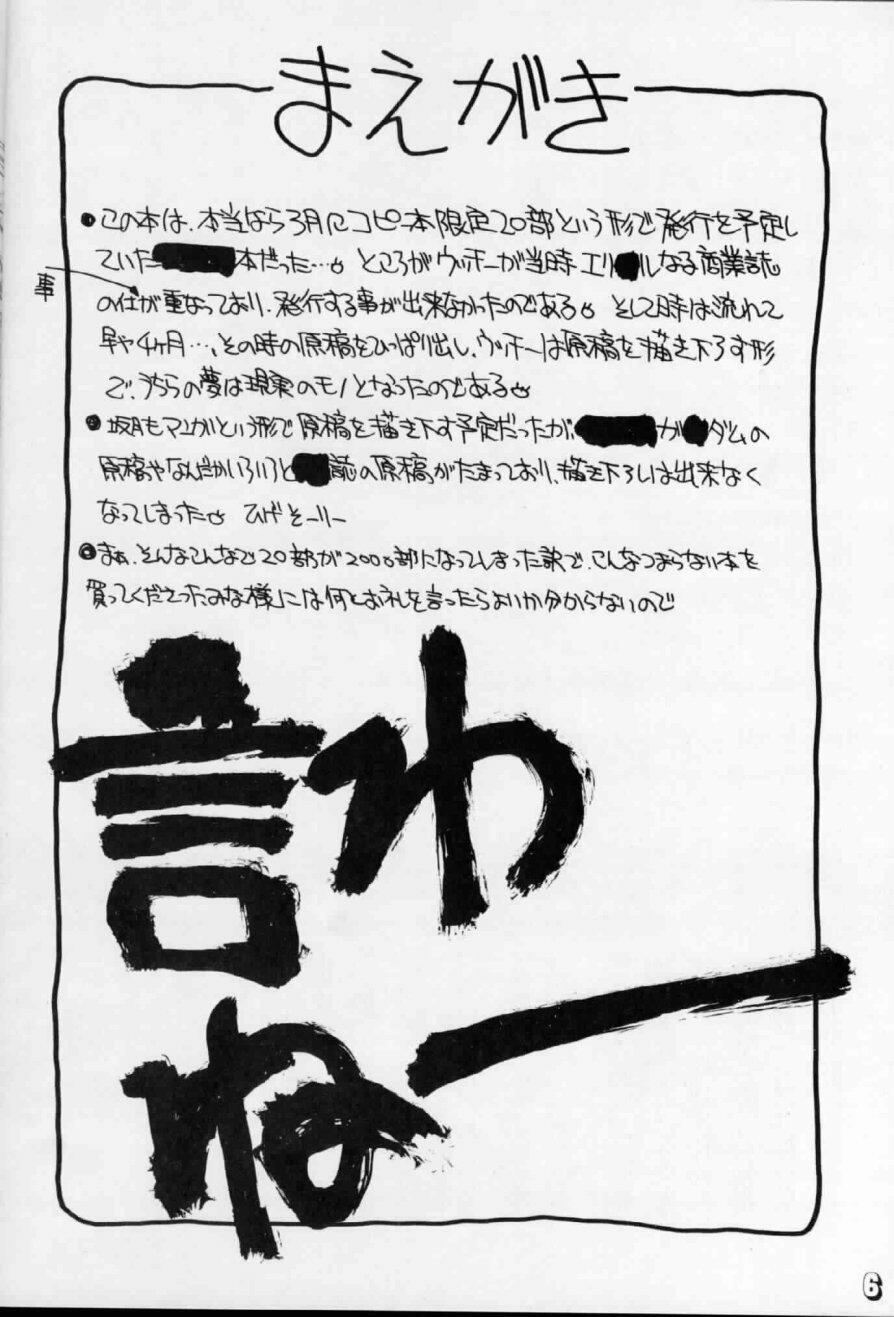 まえがき
●この本は、本当なら3月にコピー本限定20部という形で発行を予定し
ていた本だった…。ところがウッホーが当時エリルなる商業誌
事
の仕が重なっており、発行する事が出来なかったのである。そして時は流れて
早や4ヶ月…、その時の原稿をひっぱり出し、ウッホーは原稿を描き下ろす形
で、うちらの夢は現実のモノとなったのである。
●坂月もマンガという形で原稿を描き下す予定だったが、がダムの
原稿やなんだかいろいろと誌の原稿がたまっており、描き下ろしは出来なく
なってしまった。ひげそーりー
●まぁ、そんなこんなで20部が2000部になってしまった訳で、こんなつまらない本を
買ってくださったみな様には何とお礼を言ったらよいか分からないので
言わ
ねー
6